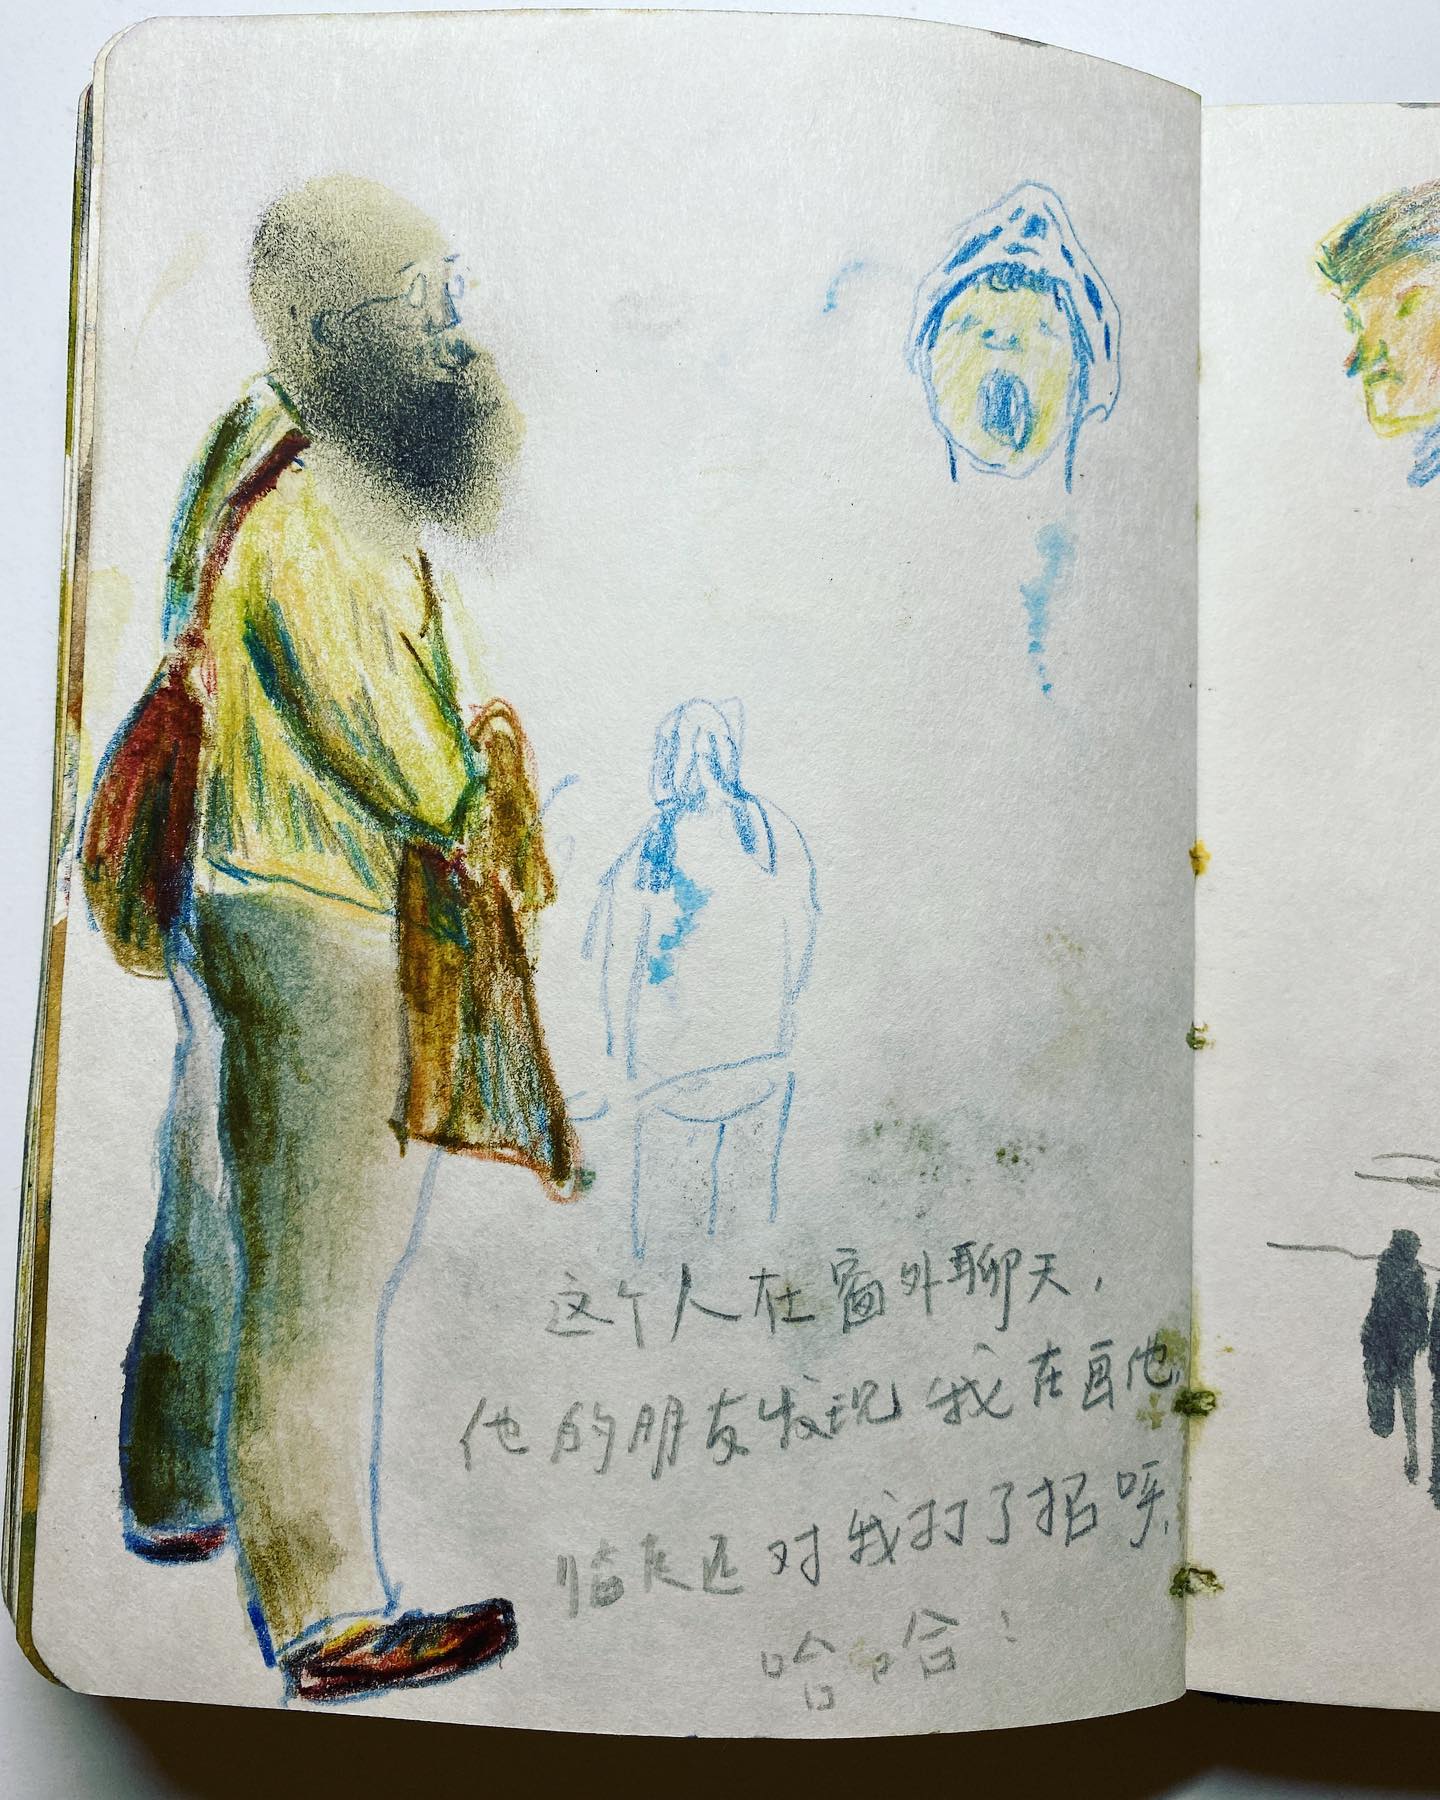 这个人在窗外聊天，
他的朋友发现我在画他，
临走还对我打了招呼，
哈哈！